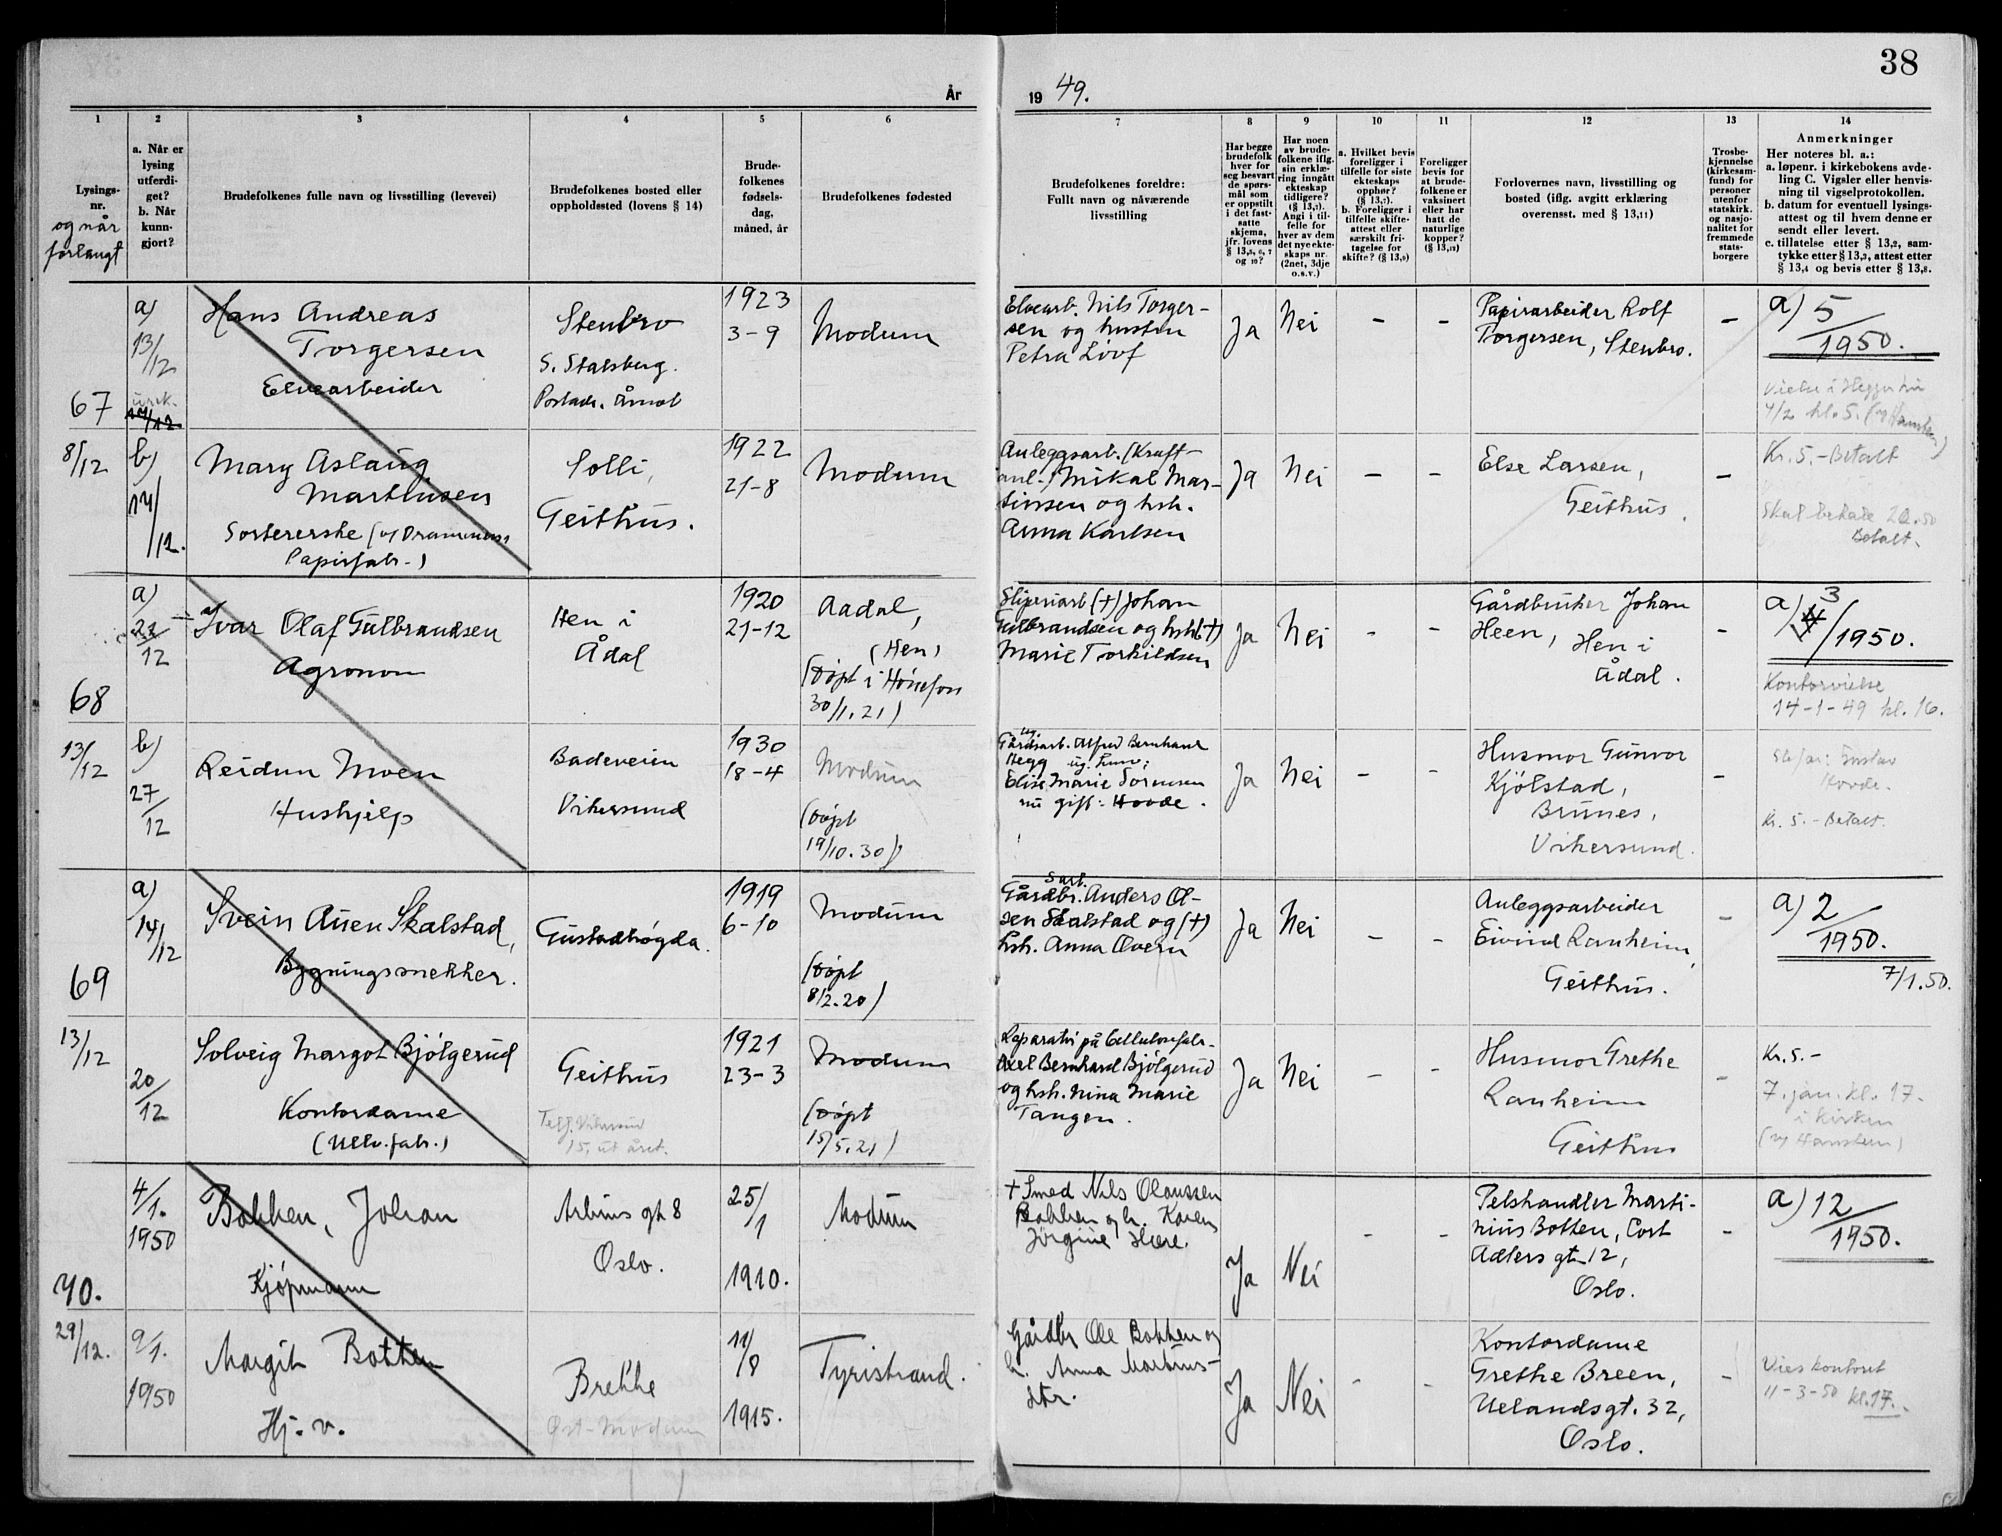 38
År
19 49.
1
2
3
4
5
6
7
8
9
10
11
12
13
14
Lysings-
nr.
og når
forlangt
a. Når er
lysing
utferdi-
get?
b. Når
kunn-
gjort?
Brudefolkenes fulle navn og livsstilling (levevei)
Brudefolkenes bosted eller
oppholdssted (lovens § 14)
Brude-
folkenes
fødsels-
dag,
måned, år
Brudefolkenes fødested
Brudefolkenes foreldre:
Fullt navn og nåværende
livsstilling
Har begge
brudefolk
hver for
seg besvart
de spørs-
mål som
er oppstilt
i det fast-
satte
skjema,
jfr. lovens
§ 13,5, 6, 7
og 10?
Har noen
av brude-
folkene iflg.
sin erklæ-
ring inngått
ekteskap
tidligere?
(§ 13,7).
Angi i til-
felle for
hver av dem
det nye ekte-
skaps nr.
(2net, 3dje
o.s.v.)
a. Hvilket bevis
foreligger i
tilfelle for siste
ekteskaps
opphør?
(§ 13,7).
b. Foreligger i
tilfelle skifte-
attest eller
særskilt fri-
tagelse for
skifte? (§ 13,9)
Foreligger
bevis for
at brude-
folkene er
vaksinert
eller har
hatt de
naturlige
kopper?
(§ 13,12)
Forlovernes navn, livsstilling og
bosted (iflg. avgitt erklæring
overensst. med § 13,11)
Trosbe-
kjennelse
(kirkesam-
fund) for
personer
utenfor
statskirk.
og nasjo-
nalitet for
fremmede
stats-
borgere
Anmerkninger
Her noteres bl. a.:
a. løpenr. i kirkebokens avde-
ling C. Vigsler eller henvis-
ning til vigselprotokollen.
b. datum for eventuell lysings-
attest og til hvem denne er
sendt eller levert.
c. tillatelse etter § 13,2, sam-
tykke etter § 13,3, attest etter
§ 13,4 og bevis etter § 13,8.
67
8/12
a)
13/12
b)
14/12.
Hans Andreas
Torgersen
Elvearbeider
Stenbro
S. Stalsberg.
Postadr. Åmot
1923
3-9
Modum
Elvearb. Nils Torger-
sen og hustru
Petra Lövf
Ja
Nei
-
-
Papirarbeider Rolf
Torgersen, Stenbro.
-
a) 5/1950.
kl. 5.
Mary Aslaug
Marthinsen
Sortererske (v/ Drammens
Papirfabr.)
Solli,
Geithus.
1922
21-8
Modum
Anleggsarb. (Kraft-
anl.) Mikal Mar-
tinsen og hsh.
Anna Karlsen
Ja
Nei
-
-
Else Larsen,
Geithus.
-
Kr. 5.- Betalt
Skal betale 20.50
Betalt.
68
13/12
a)
21/12
b)
27/12
Ivar Olaf Gulbrandsen
Agronom
Hen i
Ådal
1920
21-12
Aadal,
(Hen)
(döpt i Hönefoss
30/1.21)
Sliperiarb (+) Johan
Gulbrandsen og hsh (+)
Marie Torkildsen
Ja
Nei
-
-
Gårdbruker Johan
Heen, Hen i
Ådal.
-
a) 3/1950.
Kontorvielse
14-1-49 kl. 16.
Reidun Moen
Hushjelp
Badeveien
Vikersund
1930
18-4
Modum
(döpt
19/10.30)
ug.
Gårdsarb. Alfred Bernhard
Hegg
Elise Marie Sörensen
nu gift: Hovde.
Ja
Nei
-
-
Husmor Gunvor
Kjölstad,
Brunes,
Vikersund.
-
Stefar: Gustav
Hovde.
Kr. 5.- Betalt.
69
13/12
a)
14/12
20/12
Svein Auen Skalstad,
Bygningssnekker.
Gustadhögda.
1919
6-10
Modum
(döpt
8/2.20)
Sarb.
Gårdbr. Anders Ol-
sen Skalstad og (+)
hsh. Anna Overn
Ja
Nei
-
-
Anleggsarbeider
Eivind Ranheim,
Geithus.
-
a) 2/1950.
7/1.50.
Solveig Margot Bjölgerud
Kontordame
(Ullv. fabr.)
Geithus
15, ut året.
1921
23-3
Modum
(döpt
15/5.21)
Reparatör på Cellulosefabr.
Axel Bernhard Bjölgerud
og hsh. Nina Marie
Tangen.
Ja
Nei
-
-
Husmor Grethe
Ranheim
Geithus
-
Kr. 5.-
7. jan. kl. 17.
i kirken
(v/ Hanstein)
70.
29/12.
4/1.
1950
9/1.
1950
Bakken, Johan
Kjöpmann
Arbins gt 8
Oslo.
25/1
1910.
Modum
+ Smed Nils Olaussen
Bakken og h. Karen
Jörgine Here.
Ja
Nei
-
-
Pelshandler Marti-
nius Botten, Cort
Adlers gt. 12,
Oslo.
-
a) 12/1950.
Margit Botten
Hj. v.
Brekke
Öst-Modum
11/8
1915.
Tyristrand.
Gårdbr Ole Bakken og
h. Anna Martins-
dtr.
Ja
Nei
-
-
Kontordame
Grethe Breen,
Uelandsgt. 32,
Oslo.
-
Vies kontoret
11-3-50 kl. 17.